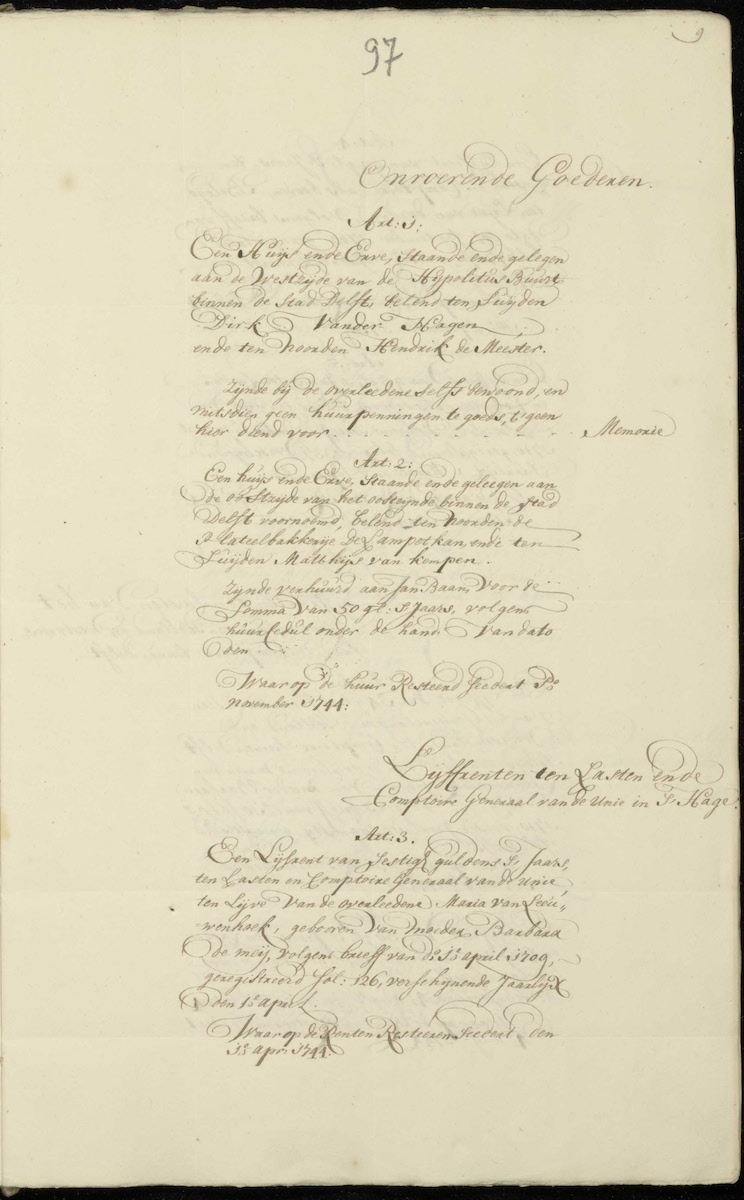 9
97
Onroerende Goederen.
Art: 1:
Een Huijs ende Erve, staande ende gelegen
aan de Westzijde van de Hijpolitus Buurt
binnen de stad Delft, belend ten Suijden
Dirk Vander Hagen
ende ten Noorden Hendrik de Meester.
Zijnde bij de overleedene selfs bewoond, en
mitsdien geen huurpenningen te goede, tgeen
hier diend voor - - - - - - - - Memorie
Art: 2:
Een huijs ende Erve, staande ende geleegen aan
de oostzijde van het oosteijnde binnen de stad
Delft voornoemd, belend ten Noorden de
Plateelbakkerije De Lampetkan, ende ten
Suijden Matthijs van Kempen.
Zijnde verhuurd aan Jan Baan, voor de
Somma van 50 gl: s'Jaars, volgens
huurCedul onder de hand Van dato
den
Waar op de huur Resteerd seedert Po
November 1744:
Lijffrenten ten Lasten ende
Comptoire Generaal van de Unie in 's Hage.
Art: 3.
Een Lijfrent van sestigh guldens 's Jaars,
ten Lasten en Comptoire Generaal van de Unie,
ten Lijve van de overleedene Maria van Leeu-
wenhoek, geboren van moeder Barbara
de meij, volgens brieff van do 1e april 1709,
geregistreerd fol: 126, verschijnende Jaarlijx
den 1e april.
Waar op de Renten Resteeren seedert den
1e apr: 1744: